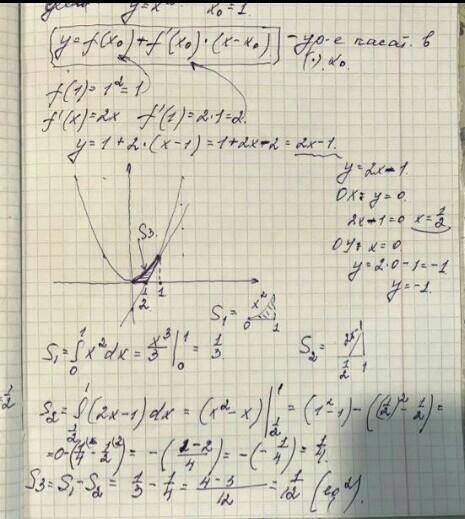 y=x² x₀=1.
y=f(x₀)+f'(x₀)·(x-x₀) - ур-е касат. в
(·) x₀.
f(1)=1²=1
f'(x)=2x f'(1)=2·1=2.
y=1+2·(x-1)=1+2x-2=2x-1.
y=2x-1.
OX: y=0.
2x-1=0 x=1/2
OY: x=0.
y=2·0-1=-1
y=-1.
S₃
1/2 1
S₁= x² 0 1
S₁=∫₀¹ x²dx = x³/3 |₀¹ = 1/3
S₂= 2x-1 1/2 1
S₂=∫_{1/2}^1 (2x-1)dx = (x²-x)|_{1/2}^1 = (1²-1)-((1/2)²-1/2)=
=0-(1/4-1/2) = -((1-2)/4) = -(-1/4)=1/4.
S₃=S₁-S₂= 1/3 - 1/4 = (4-3)/12 = 1/12 (ед²).